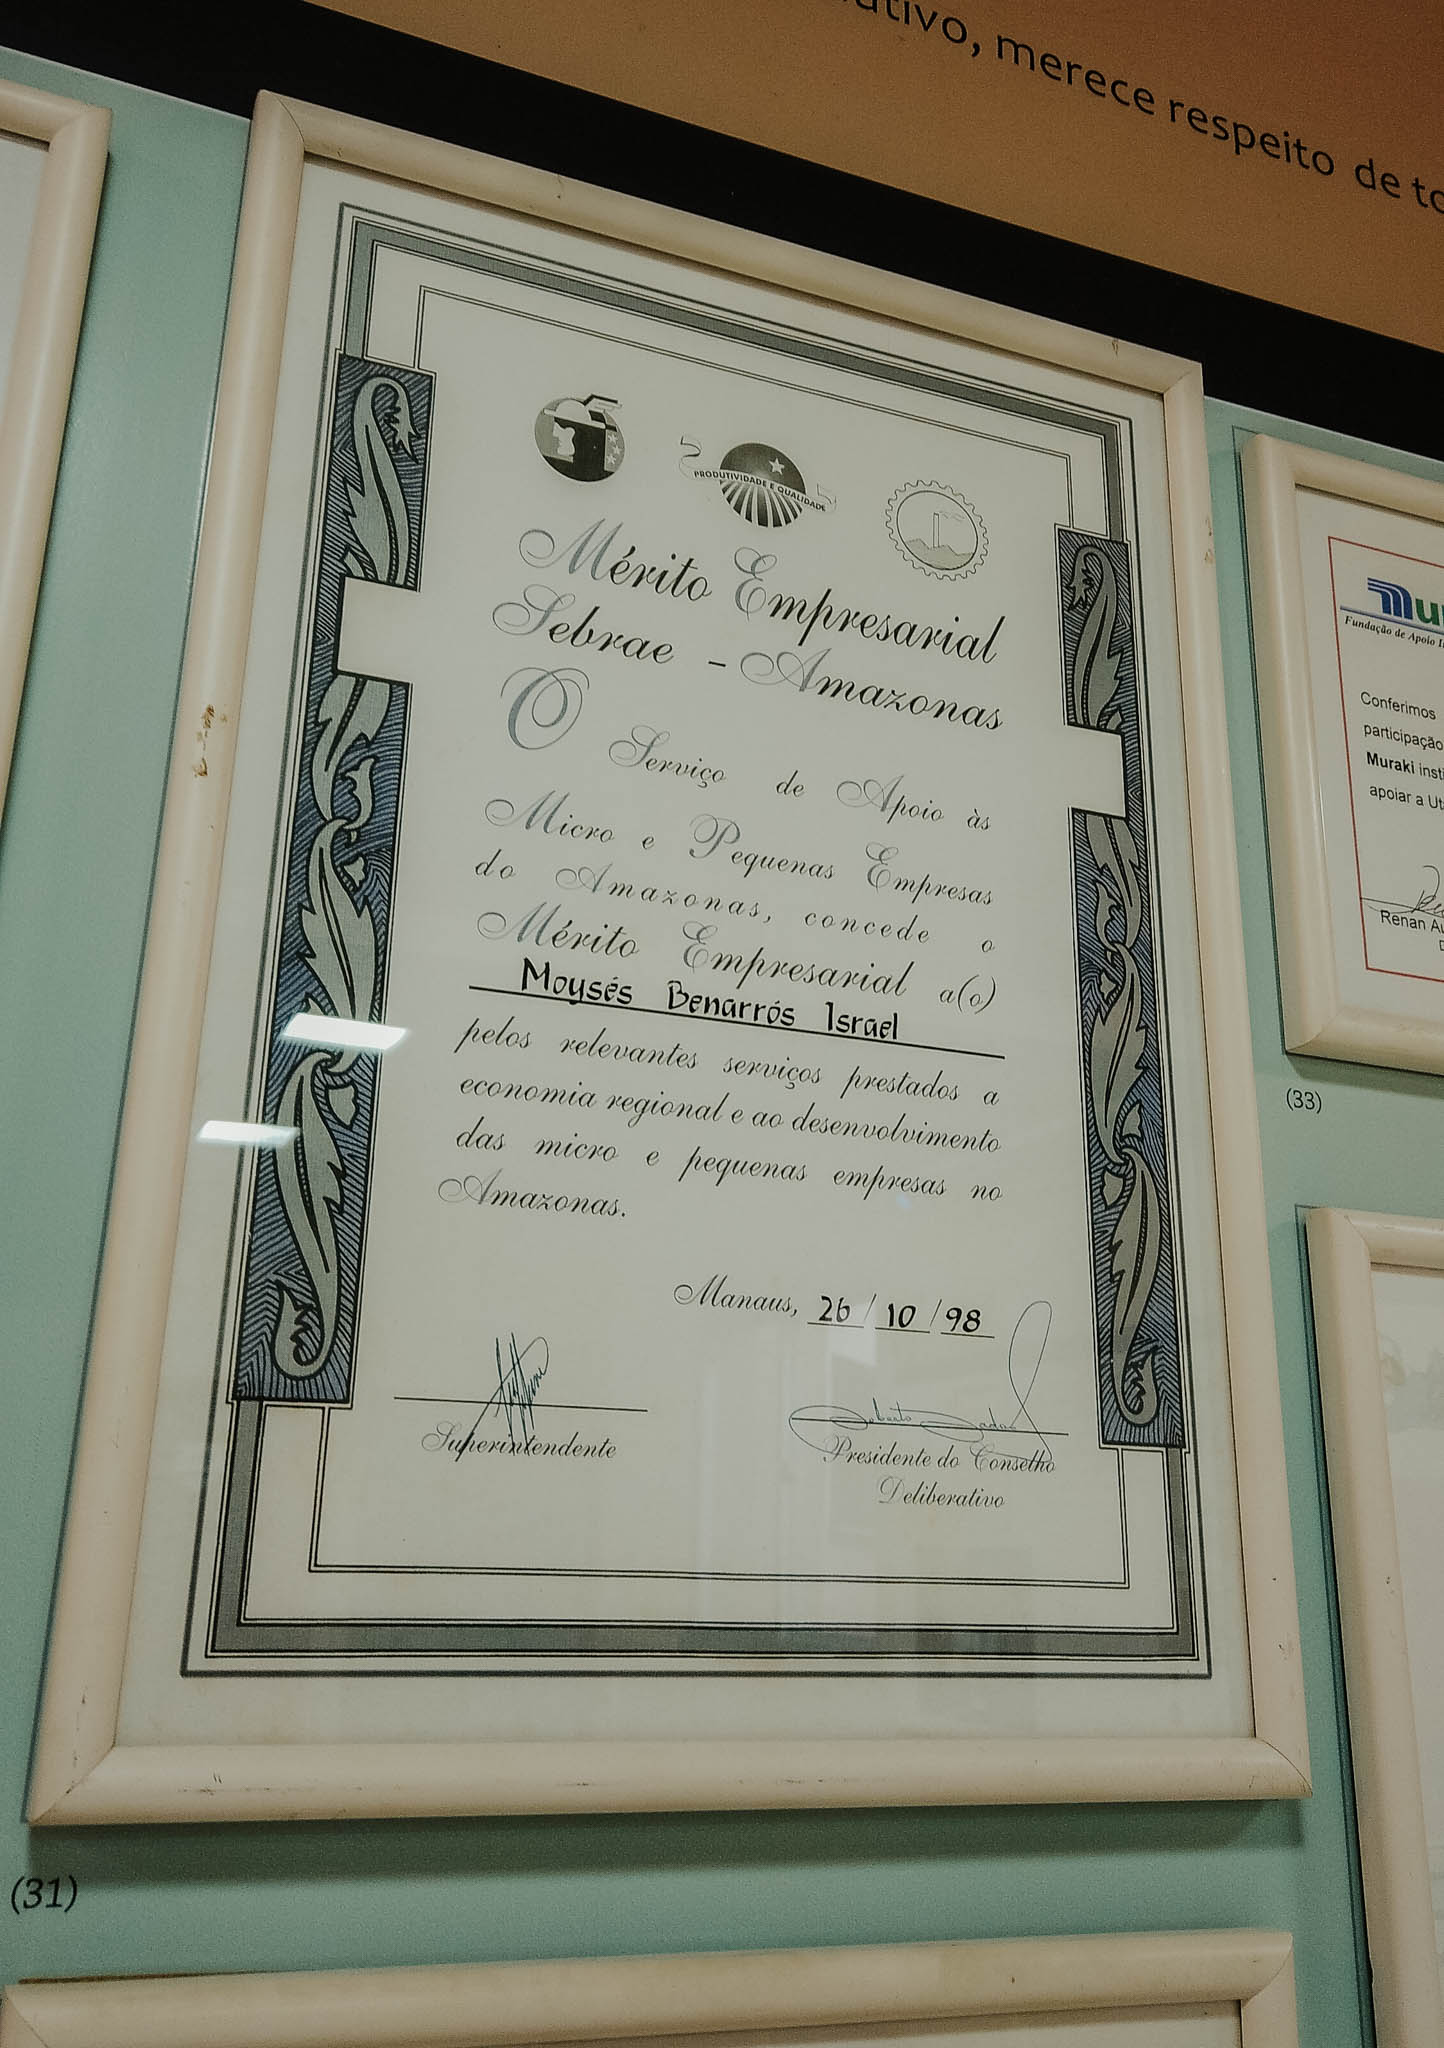 utivo, merece respeito de to
PRODUTIVIDADE E QUALIDADE
Mérito Empresarial
Sebrae - Amazonas
O Serviço de Apoio às
Micro e Pequenas Empresas
do Amazonas, concede o
Mérito Empresarial a(o)
Moysés Benarrós Israel
pelos relevantes serviços prestados a
economia regional e ao desenvolvimento
das micro e pequenas empresas no
Amazonas.
Manaus, 26 / 10 / 98
Superintendente
Presidente do Conselho
Deliberativo
(31)
Mu
Fundação de Apoio I
Conferimos
participação
Muraki inst
apoiar a Ut
Renan Au
D
(33)